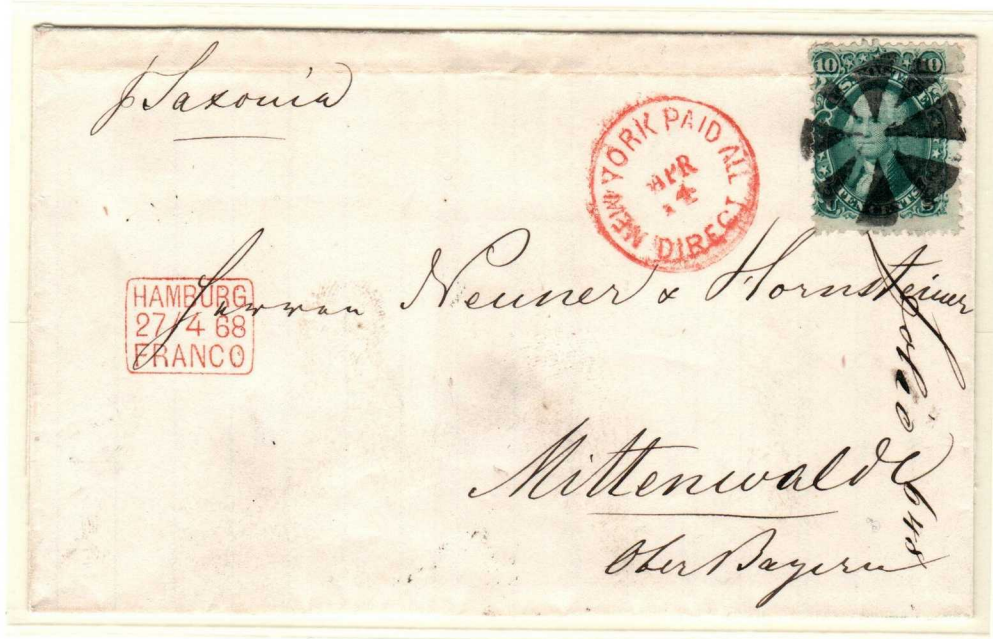 p Saxonia
NEW YORK PAID ALL
APR
14
DIRECT
10 10
HAMBURG
27/4 68
FRANCO
Herren Neuner & Hornsteiner
Mittenwald
Ober Bayern
648